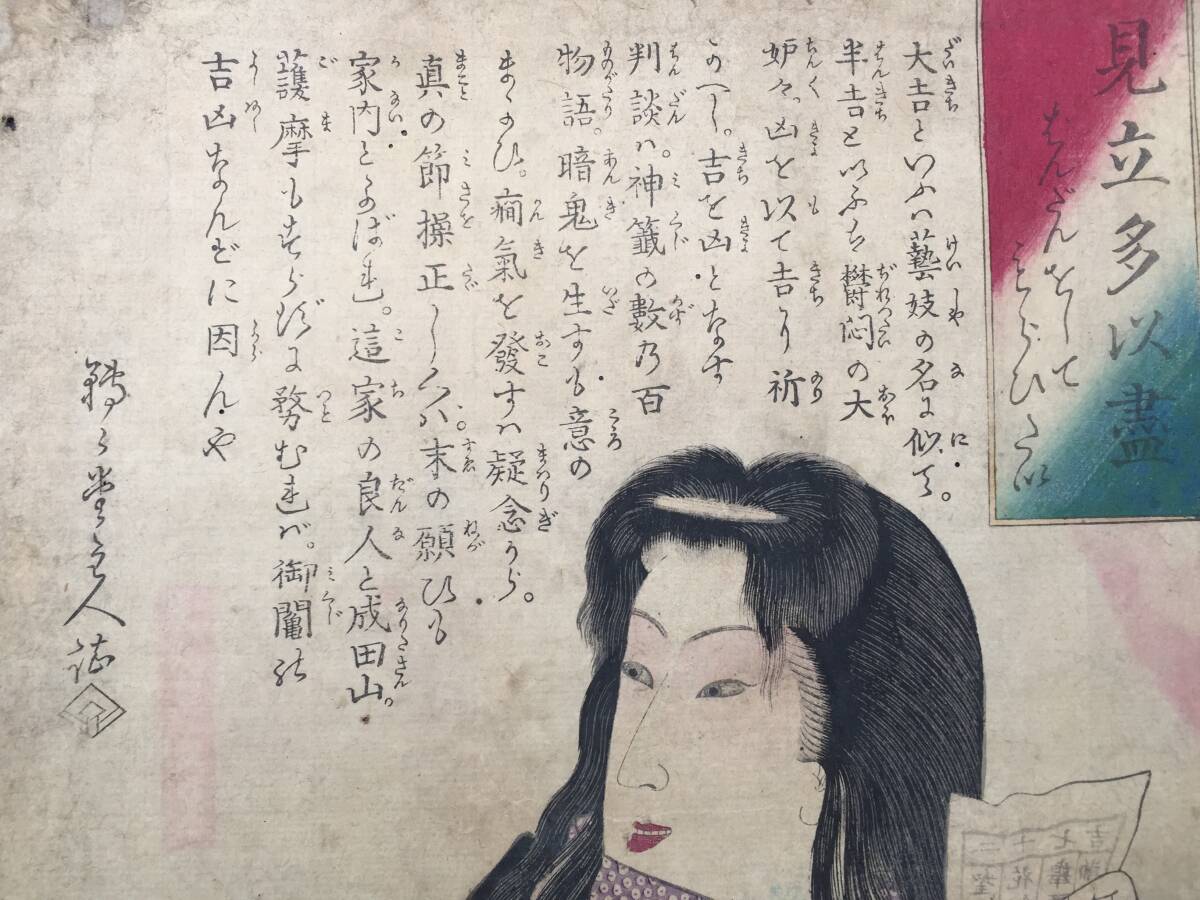 見立多以盡
はんだんをして
もらひたい
大吉といふハ藝妓の名に似て。
半吉といふも欝悶の大
妒々。凶を以て吉に祈
るべし。吉を凶となす
判談ハ。神籤の數の百
物語。暗鬼を生ずるも意の
まよひ。癇氣を發すハ疑念から。
真の節操正しくバ。末の願ひも
家内よろこばれ。這家の良人と成田山。
護摩もすらすらに務むれバ。御鬮の
吉凶なんぞに因んや
轉々堂主人誌